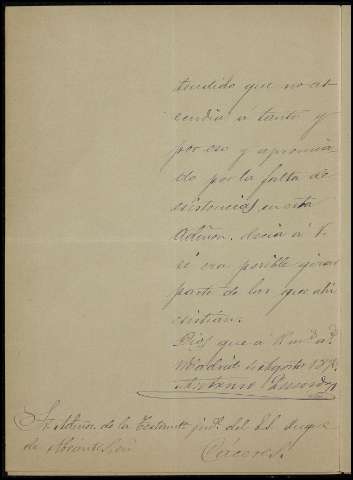 tendido que no as
cendia á tanto y
por eso y apremia
do por la falta de
existencias en esta
Admon. decia á V.
si era posible girar
parte de las que ahi
existian.
Dios gue á V. m. a.
Madrid Agosto
Antonio
Sr. Admor. de la Testamta. jud. del Duque
de
Cáceres.